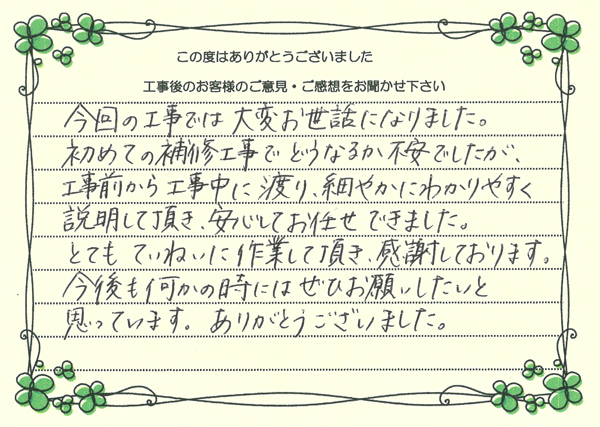 この度はありがとうございました
工事後のお客様のご意見・ご感想をお聞かせ下さい
今回の工事では大変お世話になりました。
初めての補修工事でどうなるか不安でしたが、
工事前から工事中に渡り、細やかにわかりやすく
説明して頂き、安心してお任せできました。
とてもていねいに作業して頂き、感謝しております。
今後も何かの時にはぜひお願いしたいと
思っています。ありがとうございました。